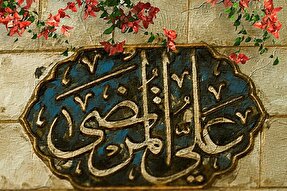 علي المرتضى